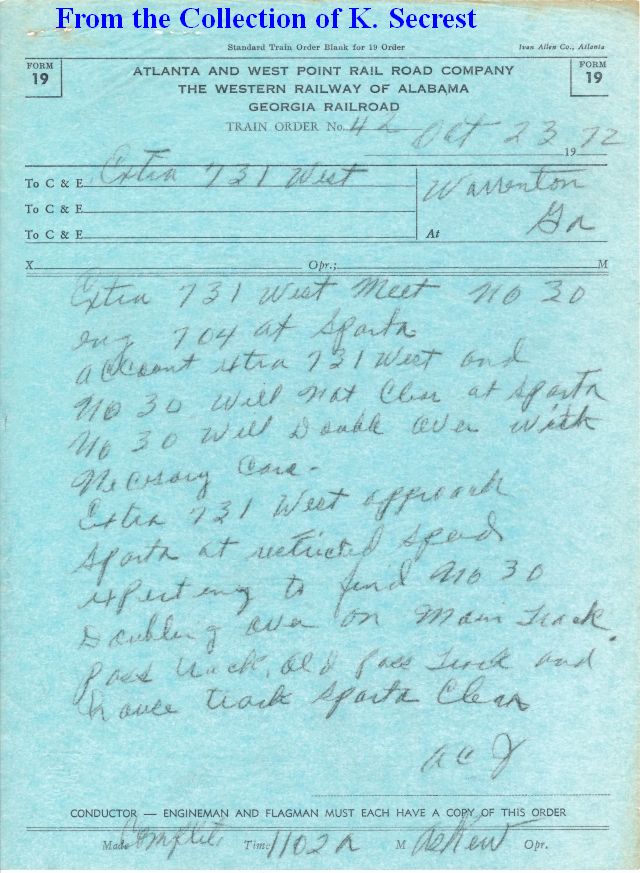 From the Collection of K. Secrest
Standard Train Order Blank for 19 Order
Ivan Allen Co., Atlanta
FORM
19
ATLANTA AND WEST POINT RAIL ROAD COMPANY
THE WESTERN RAILWAY OF ALABAMA
GEORGIA RAILROAD
FORM
19
TRAIN ORDER No. 42
Oct 23 1972
To C & E Extra 731 West
To C & E
To C & E
Warrenton
At Ga
X Opr.; M
Extra 731 West Meet No 30
eng 704 at Sparta
account extra 731 West and
No 30 Will Not Clear at Sparta
No 30 Will Double over with
Necesary Care.
Extra 731 West approach
Sparta at restricted speed
expecting to find No 30
Doubling over on Main Track.
Pass track, old Pass Track and
house track Sparta Clear
CONDUCTOR — ENGINEMAN AND FLAGMAN MUST EACH HAVE A COPY OF THIS ORDER
Made Complete Time 1102 A M Askew Opr.